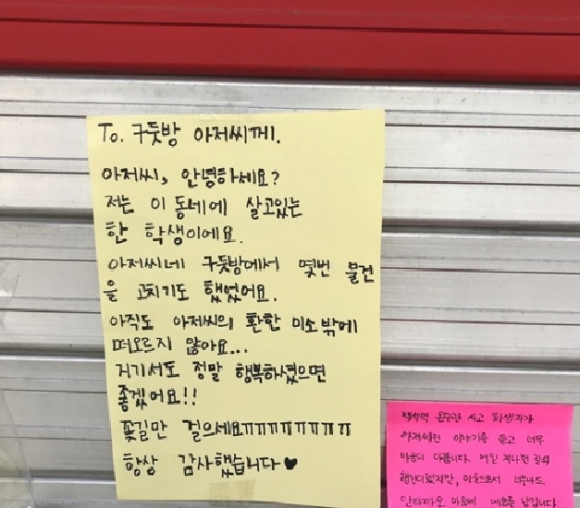 To. 구둣방 아저씨께.
아저씨, 안녕하세요?
저는 이 동네에 살고있는
한 학생이에요.
아저씨네 구둣방에서 몇번 물건
을 고치기도 했었어요.
아직도 아저씨의 환한 미소밖에
떠오르지 않아요...
거기서도 정말 행복하셨으면
좋겠어요!!
꽃길만 걸으세요ㅠㅠㅠㅠㅠㅠㅠㅠㅠ
항상 감사했습니다♥
사고 희생자가
아저씨란 이야기를 듣고 너무
마음이 아픕니다. 매일 지나던
너무나도
안타까운 마음에 메모를 남깁니다